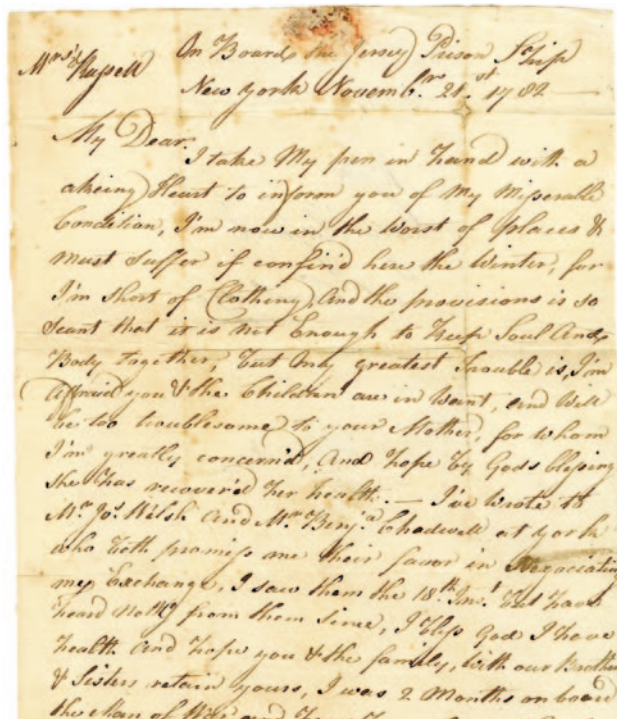 On Board the Jersey Prison Ship
Mrs. Russell
New York Novembr. 21st 1782 —
My Dear
I take My pen in hand with a
akeing Heart to inform you of my Misserable
Condition, I'm now in the Worst of places &
must Suffer if confin'd here the Winter, for
I'm Short of Cloathing, And the provisions is so
Scant that it is not Enough to Keep Soul And
Body together, but my greatest trouble is, I'm
affraid you & the Children are in Want, and Will
be too troublesome to your Mother, for whom
I'm greatly concern'd, And hope by Gods blessing
She has recover'd her health. — I've Wrote to
Mr. Jos. Walsh And Mr. Benja. Chadwell at york
who both promiss me their favor in Negociating
my Exchange, I saw them the 18th Inst. but have
heard nothg from them Since, I bless God I have
health And hope you & the family, With our Brothers
& Sisters retain yours, I was 2 Months on board
the Man of War and